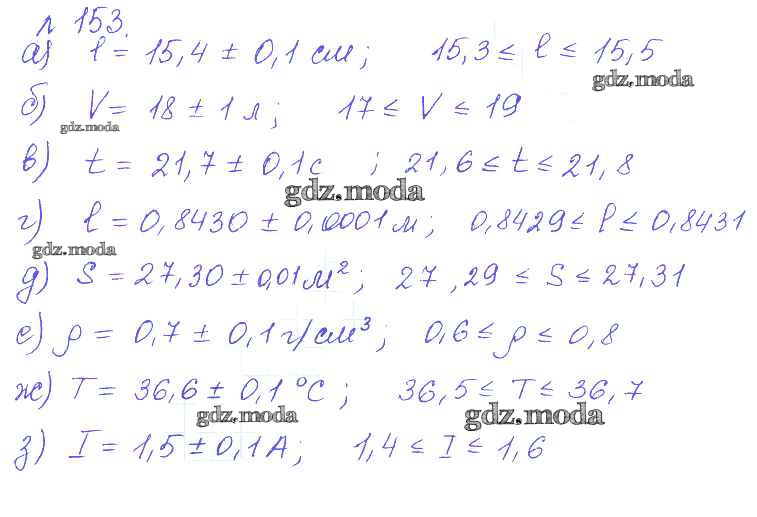 № 153.
а) l = 15,4 ± 0,1 см; 15,3 ≤ l ≤ 15,5
gdz.moda
б) V = 18 ± 1 л; 17 ≤ V ≤ 19
gdz.moda
в) t = 21,7 ± 0,1 с ; 21,6 ≤ t ≤ 21,8
gdz.moda
г) l = 0,8430 ± 0,0001 м; 0,8429 ≤ l ≤ 0,8431
gdz.moda
д) S = 27,30 ± 0,01 м²; 27,29 ≤ S ≤ 27,31
е) ρ = 0,7 ± 0,1 г/см³; 0,6 ≤ ρ ≤ 0,8
ж) T = 36,6 ± 0,1 °C; 36,5 ≤ T ≤ 36,7
gdz.moda gdz.moda
з) I = 1,5 ± 0,1 A; 1,4 ≤ I ≤ 1,6